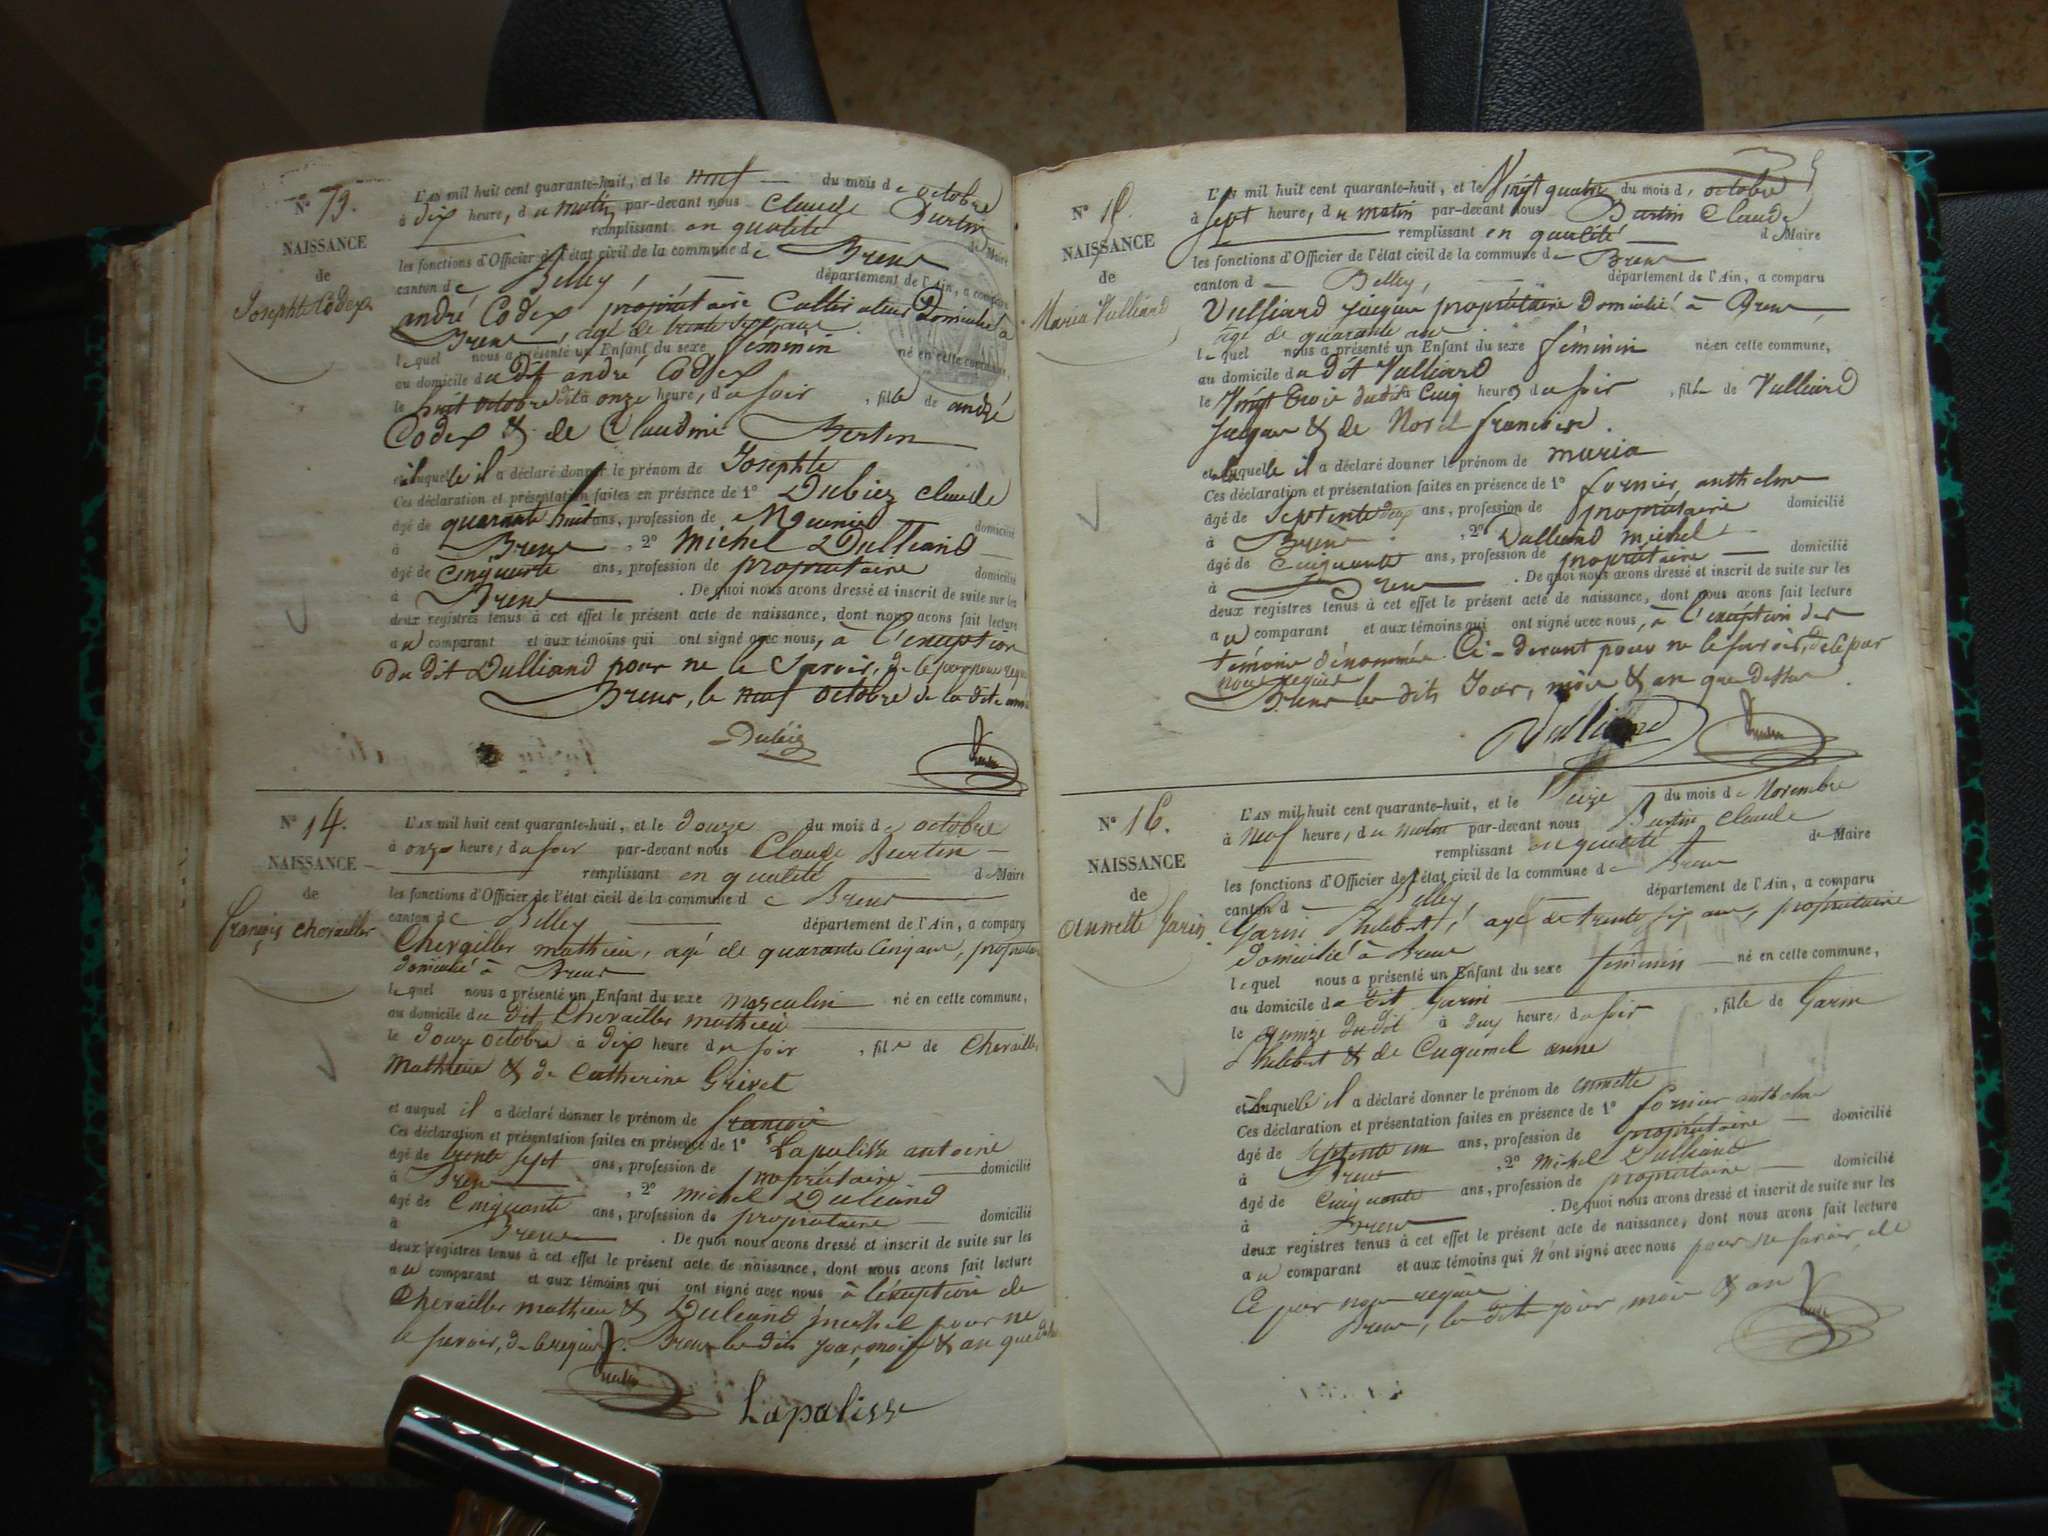 N° 13.
NAISSANCE
de
Josephte Codex
L'AN mil huit cent quarante-huit, et le neuf du mois de octobre
à dix heure, du matin par-devant nous Claude Burtin
remplissant en qualité de Maire
les fonctions d'Officier de l'état civil de la commune de Brens
canton de Belley, département de l'Ain, a comparu
andré Codex propriétaire Cultivateur Domicilié à
Brens, agé de trente sept ans
lequel nous a présenté un Enfant du sexe féminin né en cette commune,
au domicile du dit andré Codex
le huit octobre à onze heure, du soir, fille de andré
Codex & de Claudine Bertin
et laquelle il a déclaré donner le prénom de Josephte
Ces déclaration et présentation faites en présence de 1° Dubiez Claude
âgé de quarante huit ans, profession de Meunier domicilié
à Brens, 2° Michel Dulliand
âgé de cinquante ans, profession de propriétaire domicilié
à Brens. De quoi nous avons dressé et inscrit de suite sur les
deux registres tenus à cet effet le présent acte de naissance, dont nous avons fait lecture
au comparant et aux témoins qui ont signé avec nous, à l'exception
du dit Dulliand pour ne le savoir, de ce par nous requis
Brens, le neuf octobre de la dite année
Dubiez
N° 14.
NAISSANCE
de
françois Chevailler
L'AN mil huit cent quarante-huit, et le douze du mois de octobre
à onze heure, du soir par-devant nous Claude Burtin
remplissant en qualité de Maire
les fonctions d'Officier de l'état civil de la commune de Brens
canton de Belley département de l'Ain, a comparu
Chevailler mathieu, agé de quarante cinq ans, propriétaire
domicilié à Brens
lequel nous a présenté un Enfant du sexe masculin né en cette commune,
au domicile du dit Chevailler mathieu
le douze octobre à dix heure du soir, fils de Chevailler
Mathieu & de Catherine Grivet
et auquel il a déclaré donner le prénom de françois
Ces déclaration et présentation faites en présence de 1° Lapalisse antoine
âgé de trente sept ans, profession de propriétaire domicilié
à Brens, 2° Michel Dulliand
âgé de Cinquante ans, profession de propriétaire domicilié
à Brens. De quoi nous avons dressé et inscrit de suite sur les
deux registres tenus à cet effet le présent acte de naissance, dont nous avons fait lecture
au comparant et aux témoins qui ont signé avec nous à l'exception de
Chevailler mathieu & Dulliand michel pour ne
le savoir, de ce requis. Brens les dits jour, mois & an que
Lapalisse
N° 15.
NAISSANCE
de
Maria Vulliard
L'AN mil huit cent quarante-huit, et le Vingt quatre du mois de octobre
à Sept heure, du matin par-devant nous Burtin Claude
remplissant en qualité de Maire
les fonctions d'Officier de l'état civil de la commune de Brens
canton de Belley, département de l'Ain, a comparu
Vulliard Jacques propriétaire Domicilié à Brens,
agé de quarante ans
lequel nous a présenté un Enfant du sexe féminin né en cette commune,
au domicile du dit Vulliard
le Vingt trois dudit à Cinq heure, du soir, fille de Vulliard
Jacques & de françoise.
et laquelle il a déclaré donner le prénom de maria
Ces déclaration et présentation faites en présence de 1° fornier anthelme
âgé de Septente deux ans, profession de propriétaire domicilié
à Brens, 2° Dulliand michel
âgé de Cinquante ans, profession de propriétaire domicilié
à Brens. De quoi nous avons dressé et inscrit de suite sur les
deux registres tenus à cet effet le présent acte de naissance, dont nous avons fait lecture
au comparant et aux témoins qui ont signé avec nous, à l'exception des
témoins dénommés Ci-devant pour ne le savoir, de ce par
nous requis
Brens les dits Jour, mois & an que dessus
Vulliard
N° 16.
NAISSANCE
de
Annette Garin
L'AN mil huit cent quarante-huit, et le Seize du mois de Novembre
à Neuf heure, du matin par-devant nous Burtin Claude
remplissant en qualité de Maire
les fonctions d'Officier de l'état civil de la commune de Brens
canton de Belley département de l'Ain, a comparu
Garin Philibert, agé de trente six ans, propriétaire
domicilié à Brens
lequel nous a présenté un Enfant du sexe féminin né en cette commune,
au domicile du dit Garin
le quinze du dit à heure, du soir, fille de Garin
Philibert & de anne
et laquelle il a déclaré donner le prénom de annette
Ces déclaration et présentation faites en présence de 1° fornier anthelme
âgé de septente ans, profession de propriétaire domicilié
à Brens, 2° Michel Dulliand
âgé de Cinquante ans, profession de propriétaire domicilié
à Brens. De quoi nous avons dressé et inscrit de suite sur les
deux registres tenus à cet effet le présent acte de naissance, dont nous avons fait lecture
au comparant et aux témoins qui N ont signé avec nous pour ne savoir, de
Ce par nous requis
Brens, les dits jour, mois & an